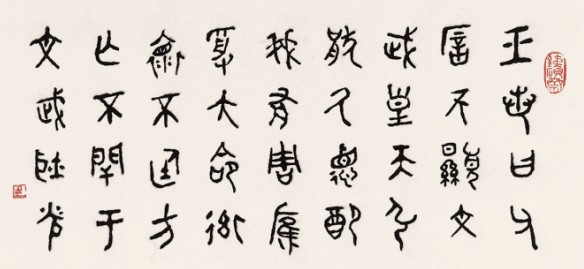 王若曰父
㕂不顯文
武皇天引
猒氒德配
我有周雁
受大命衒
褱不廷方
亡不閈于
文武耿光